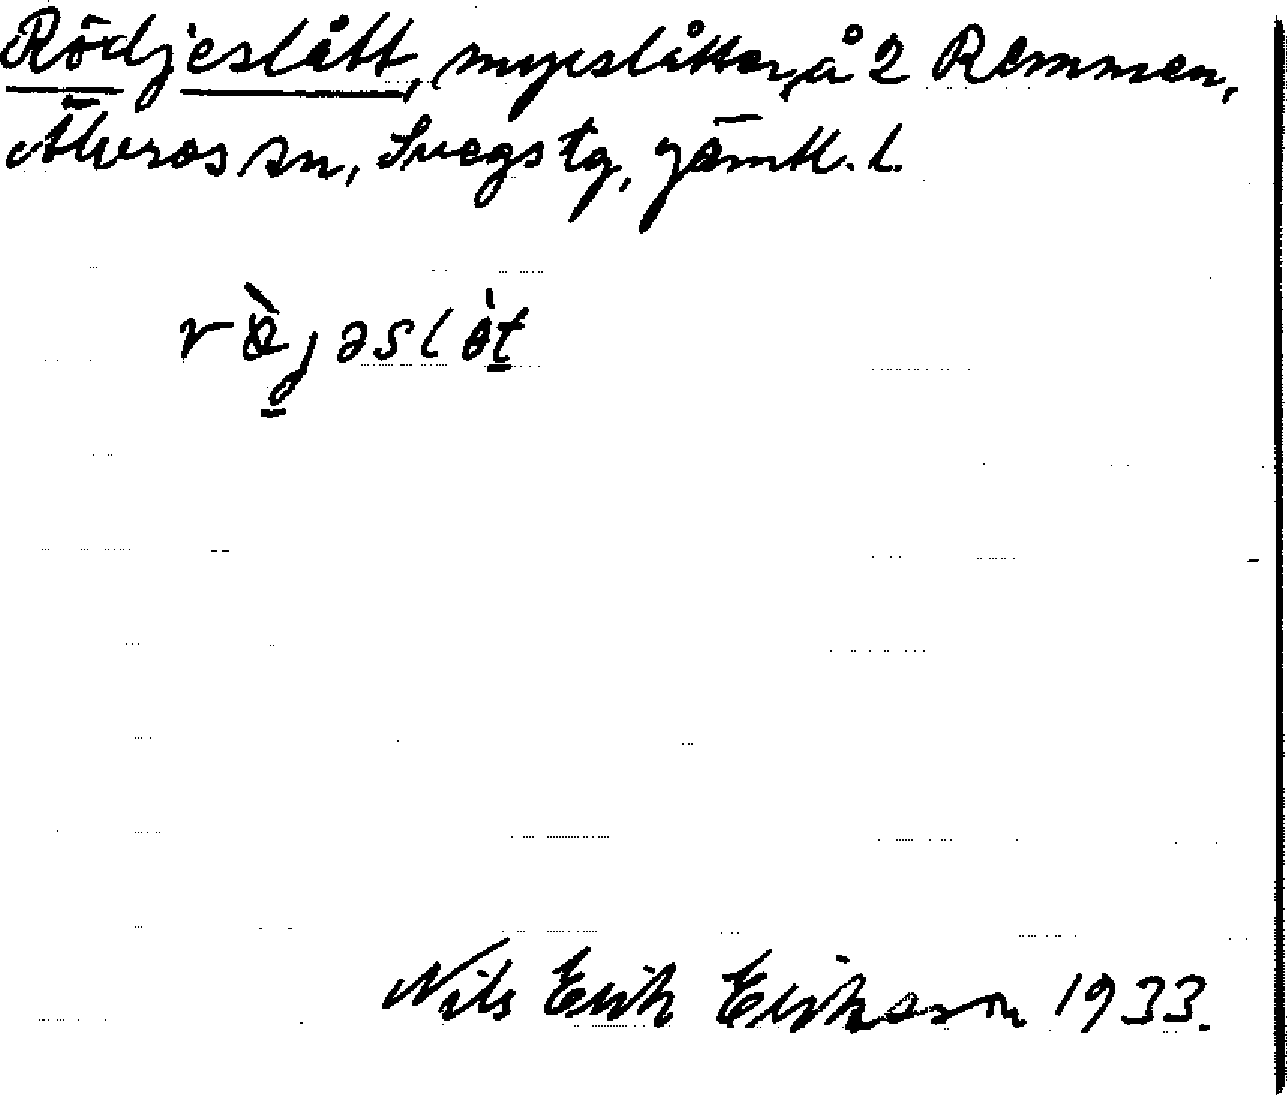 Rödjeslått, myrslåtter, å 2 Remmen,
Älvros sn, Svegs tg, Jämtl. l.
rö̀jəslòt
Nils Erik Eriksson 1933.